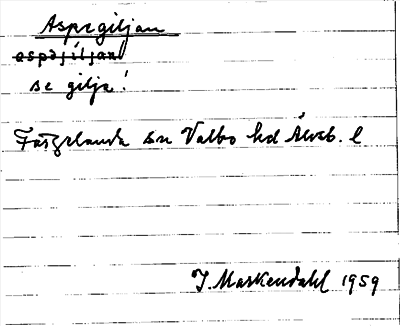 Aspegiljan
aspəjiljan
se gilja!
Färgelanda sn Valbo hd Älvsb. l
J. Markendahl 1959